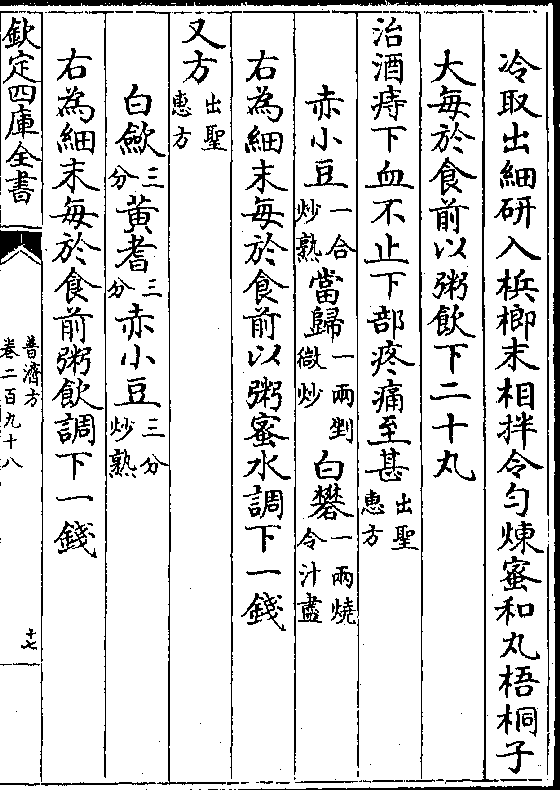 冷取出細研入梹榔末相拌令勻煉蜜和丸梧桐子
大每於食前以粥飲下二十丸
治酒痔下血不止下部疼痛至甚出聖惠方
赤小豆一合炒熟當歸一兩剉微炒白礬一兩燒令汁盡
右為細末每於食前以粥蜜水調下一錢
又方出聖惠方
白歛三分黃耆三分赤小豆三分炒熟
右為細末每於食前粥飲調下一錢
欽定四庫全書
普濟方
卷二百九十八
十七